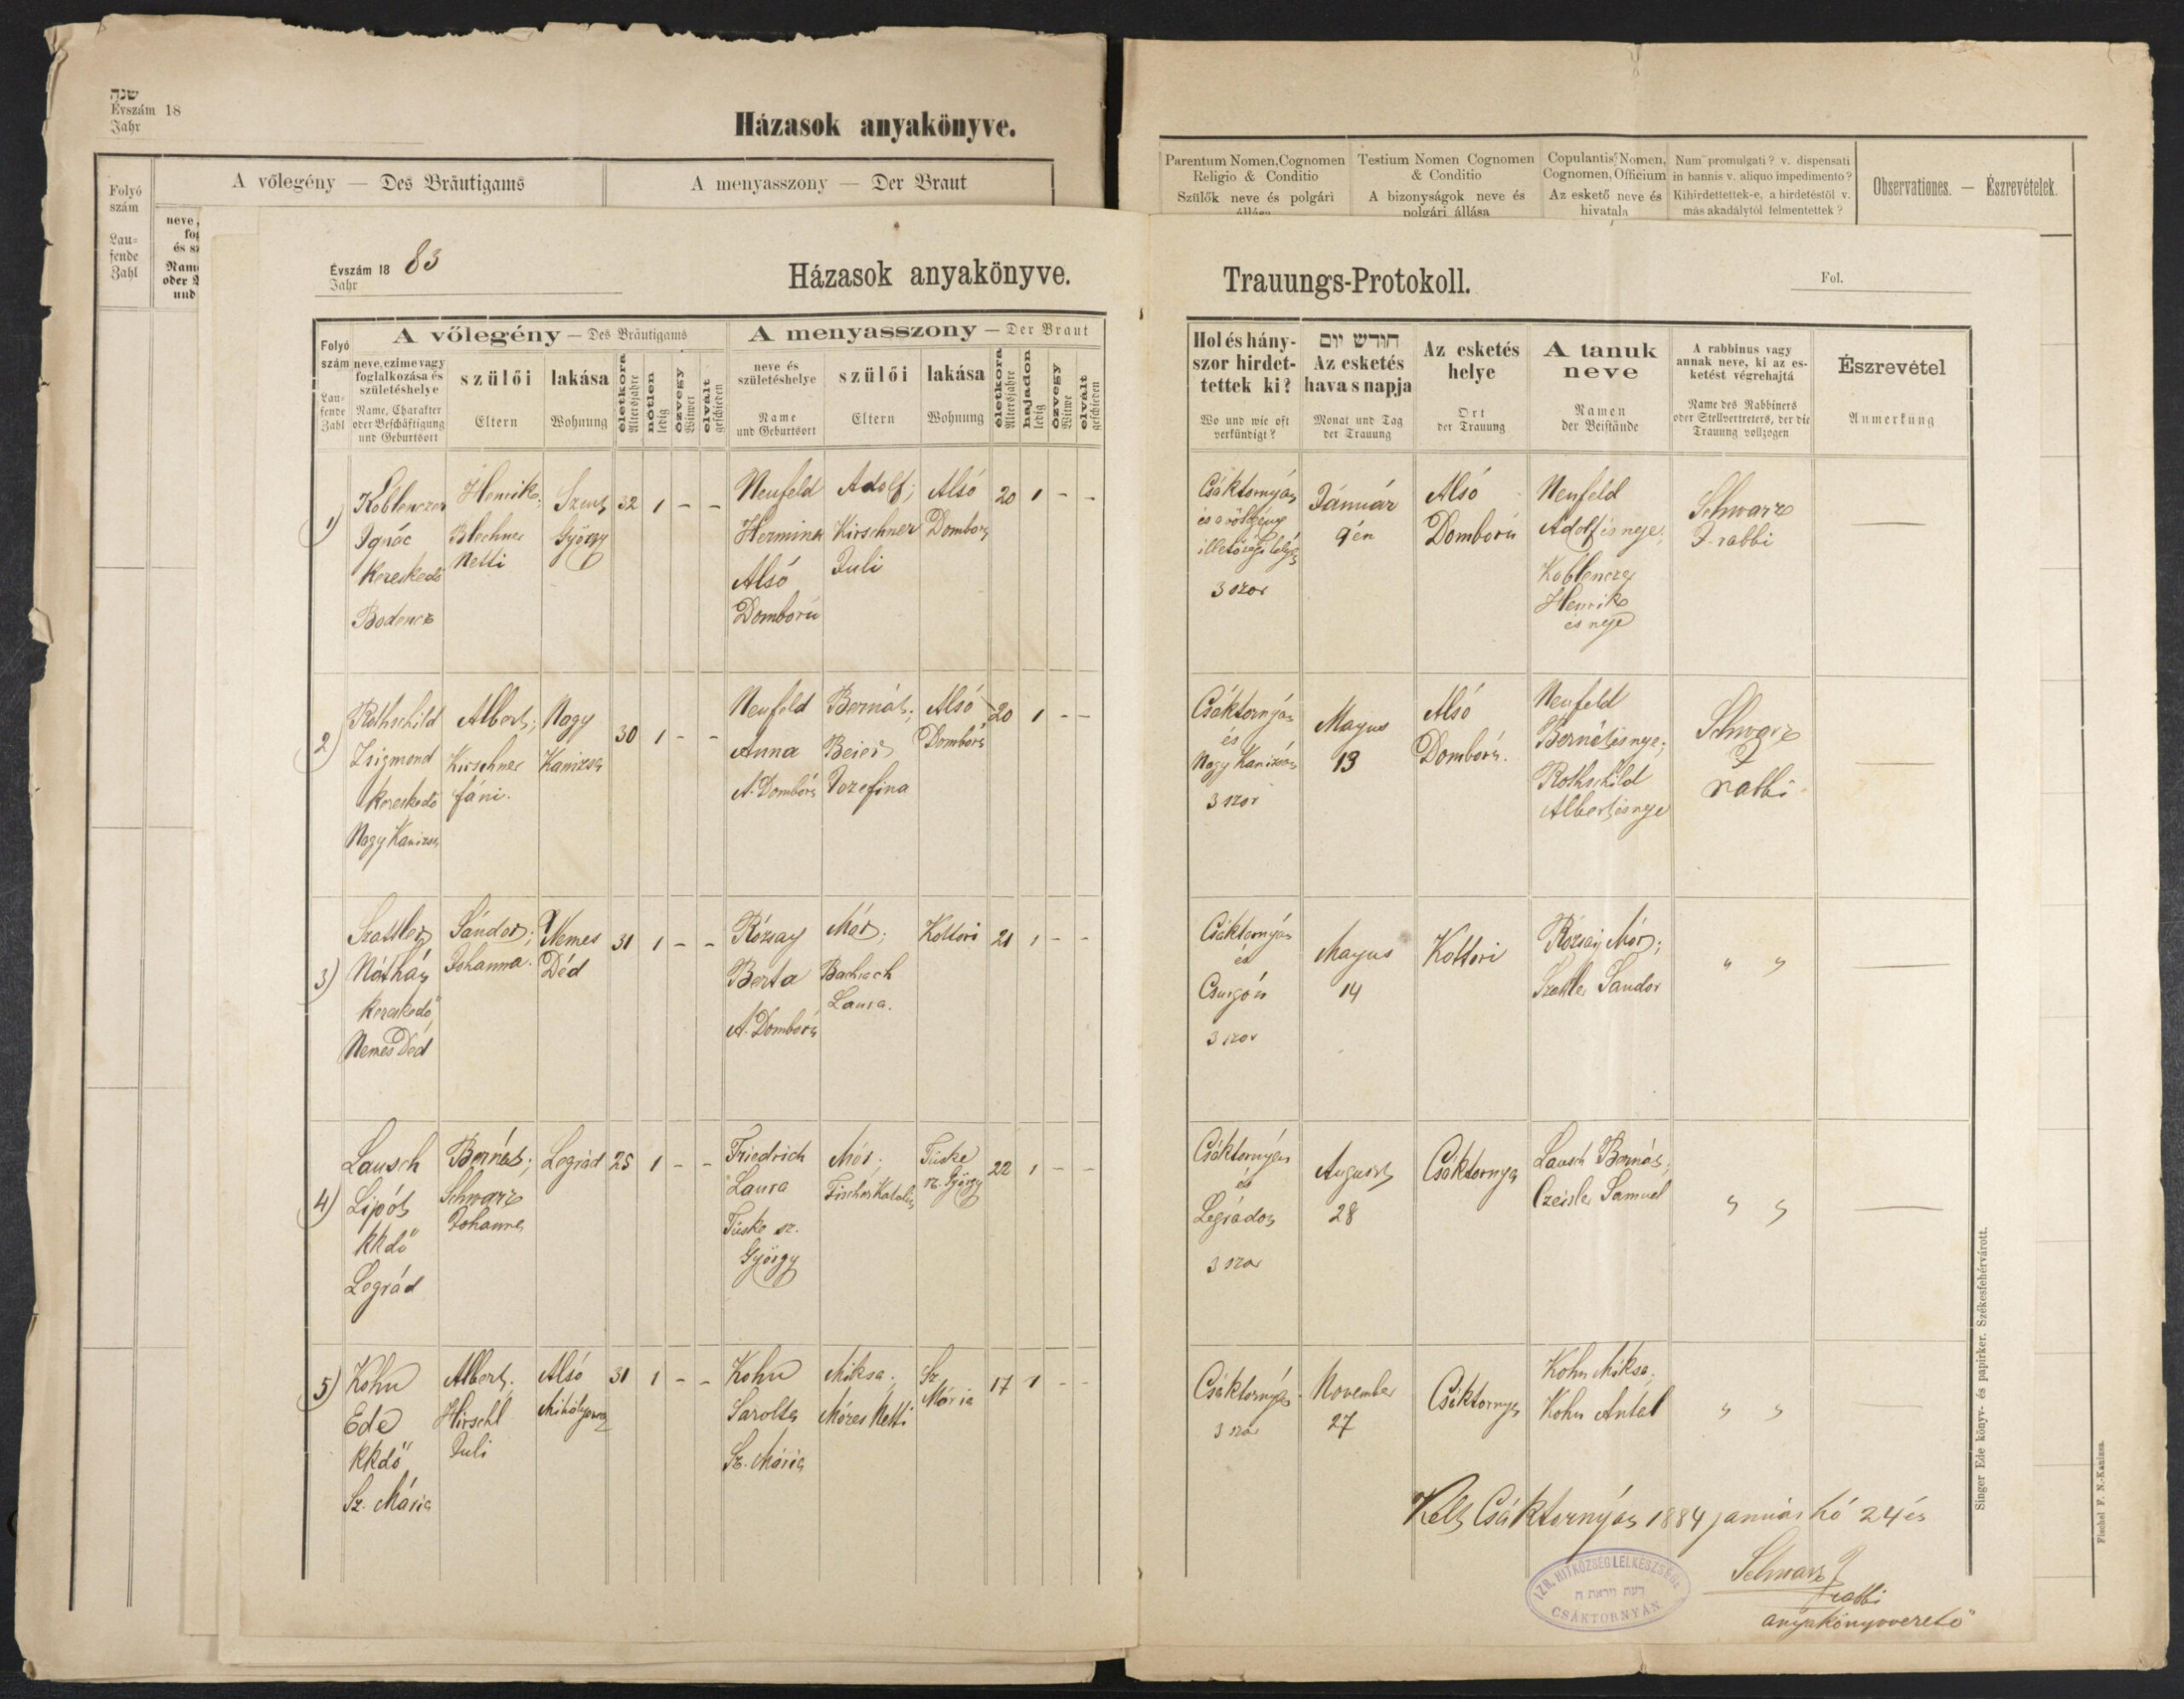 שנה
Évszám 18
Jahr
Házasok anyakönyve.
Folyó szám
Laufende Zahl
A vőlegény — Des Bräutigams
A menyasszony — Der Braut
Parentum Nomen, Cognomen
Religio & Conditio
Szülők neve és polgári
Testium Nomen Cognomen
& Conditio
A bizonyságok neve és
polgári állása
Copulantis Nomen,
Cognomen, Officium
Az eskető neve és
hivatala
Num promulgati? v. dispensati
in bannis v. aliquo impedimento?
Kihirdettettek-e, a hirdetéstől v.
más akadálytól felmentettek?
Observationes. — Észrevételek.
Évszám 18 83
Jahr
Házasok anyakönyve.
Trauungs-Protokoll.
Fol.
Folyó szám
Laufende Zahl
A vőlegény — Des Bräutigams
neve, czime vagy
foglalkozása és
születéshelye
Name, Charakter
oder Beschäftigung
und Geburtsort
szülői
Eltern
lakása
Wohnung
életkora
Altersjahre
nőtlen
ledig
özvegy
Witwer
elvált
geschieden
A menyasszony — Der Braut
neve és
születéshelye
Name
und Geburtsort
szülői
Eltern
lakása
Wohnung
életkora
Altersjahre
hajadon
ledig
özvegy
Witwe
elvált
geschieden
Hol és hány-
szor hirdet-
tettek ki?
Wo und wie oft
verkündigt?
חודש יום
Az esketés
hava s napja
Monat und Tag
der Trauung
Az esketés
helye
Ort
der Trauung
A tanuk
neve
Namen
der Beistände
A rabbinus vagy
annak neve, ki az es-
ketést végrehajtá
Name des Rabbiners
oder Stellvertreters, der die
Trauung vollzogen
Észrevétel
Anmerkung
1)
Koblenczer
Ignác
Kereskedő
Bodencz
Henrik;
Blechner
Netti
Szent
György
32 1 - -
Neufeld
Hermina
Alsó
Domború
Adolf;
Kirschner
Juli
Alsó
Domború
20 1 - -
Csáktornyán
és a vőlegény
3 szor
Január
9én
Alsó
Domború
Neufeld
Adolf és neje;
Koblenczer
Henrik
és neje
Schwarz
J. rabbi
2)
Rothschild
Zsigmond
Kereskedő
Nagy Kanizsa
Albert;
Kirschner
fáni.
Nagy
Kanizsa
30 1 - -
Neufeld
Anna
A. Domború
Bernát;
Beier
Jozefina
Alsó
Domború
20 1 - -
Csáktornyán
és
Nagy Kanizsán
3 szor
Mayus
13
Alsó
Domború.
Neufeld
Bernát és neje;
Rothschild
Albert és neje
Schwarz
J
rabbi
3)
Náthán
Kereskedő
Nemes Déd
Sándor;
Johanna.
Nemes
Déd
31 1 - -
Rózsay
Berta
A. Domború
Mór;
Bachrach
Laura.
Kottori
21 1 - -
Csáktornyán
és
Csurgón
3 szor
Mayus
14
Kottori
Rózsay Mór;
Sándor
" "
4)
Lausch
Lipót
kkdő
Legrád
Bernát;
Schwarz
Johanna
Legrád
25 1 - -
Friedrich
Laura
Tüske sz.
György
Mór;
Fischer Katalin
Tüske
sz. György
22 1 - -
Csáktornyán
és
Legrádon
3 szor
August
28
Csáktornya
Lausch Bernát;
Czeisler Samuel
" "
5)
Kohn
Ede
kkdő
Sz. Mária
Albert;
Hirschl
Juli
Alsó
Mihályovecz
31 1 - -
Kohn
Sarolta
Sz. Mária
Miksa;
Mózes Netti
Sz.
Mária
17 1 - -
Csáktornyán
3 szor
November
27
Csáktornya
Kohn Miksa;
Kohn Antal
" "
Kelt Csáktornyán 1884 január hó 24én
Schwarz J
rabbi
anyakönyvvezető
IZR. HITKÖZSÉG LELKÉSZSÉGE
CSÁKTORNYÁN
Singer Ede könyv- és papirker. Székesfehérvárott.
Fischel F. N.-Kanizsa.